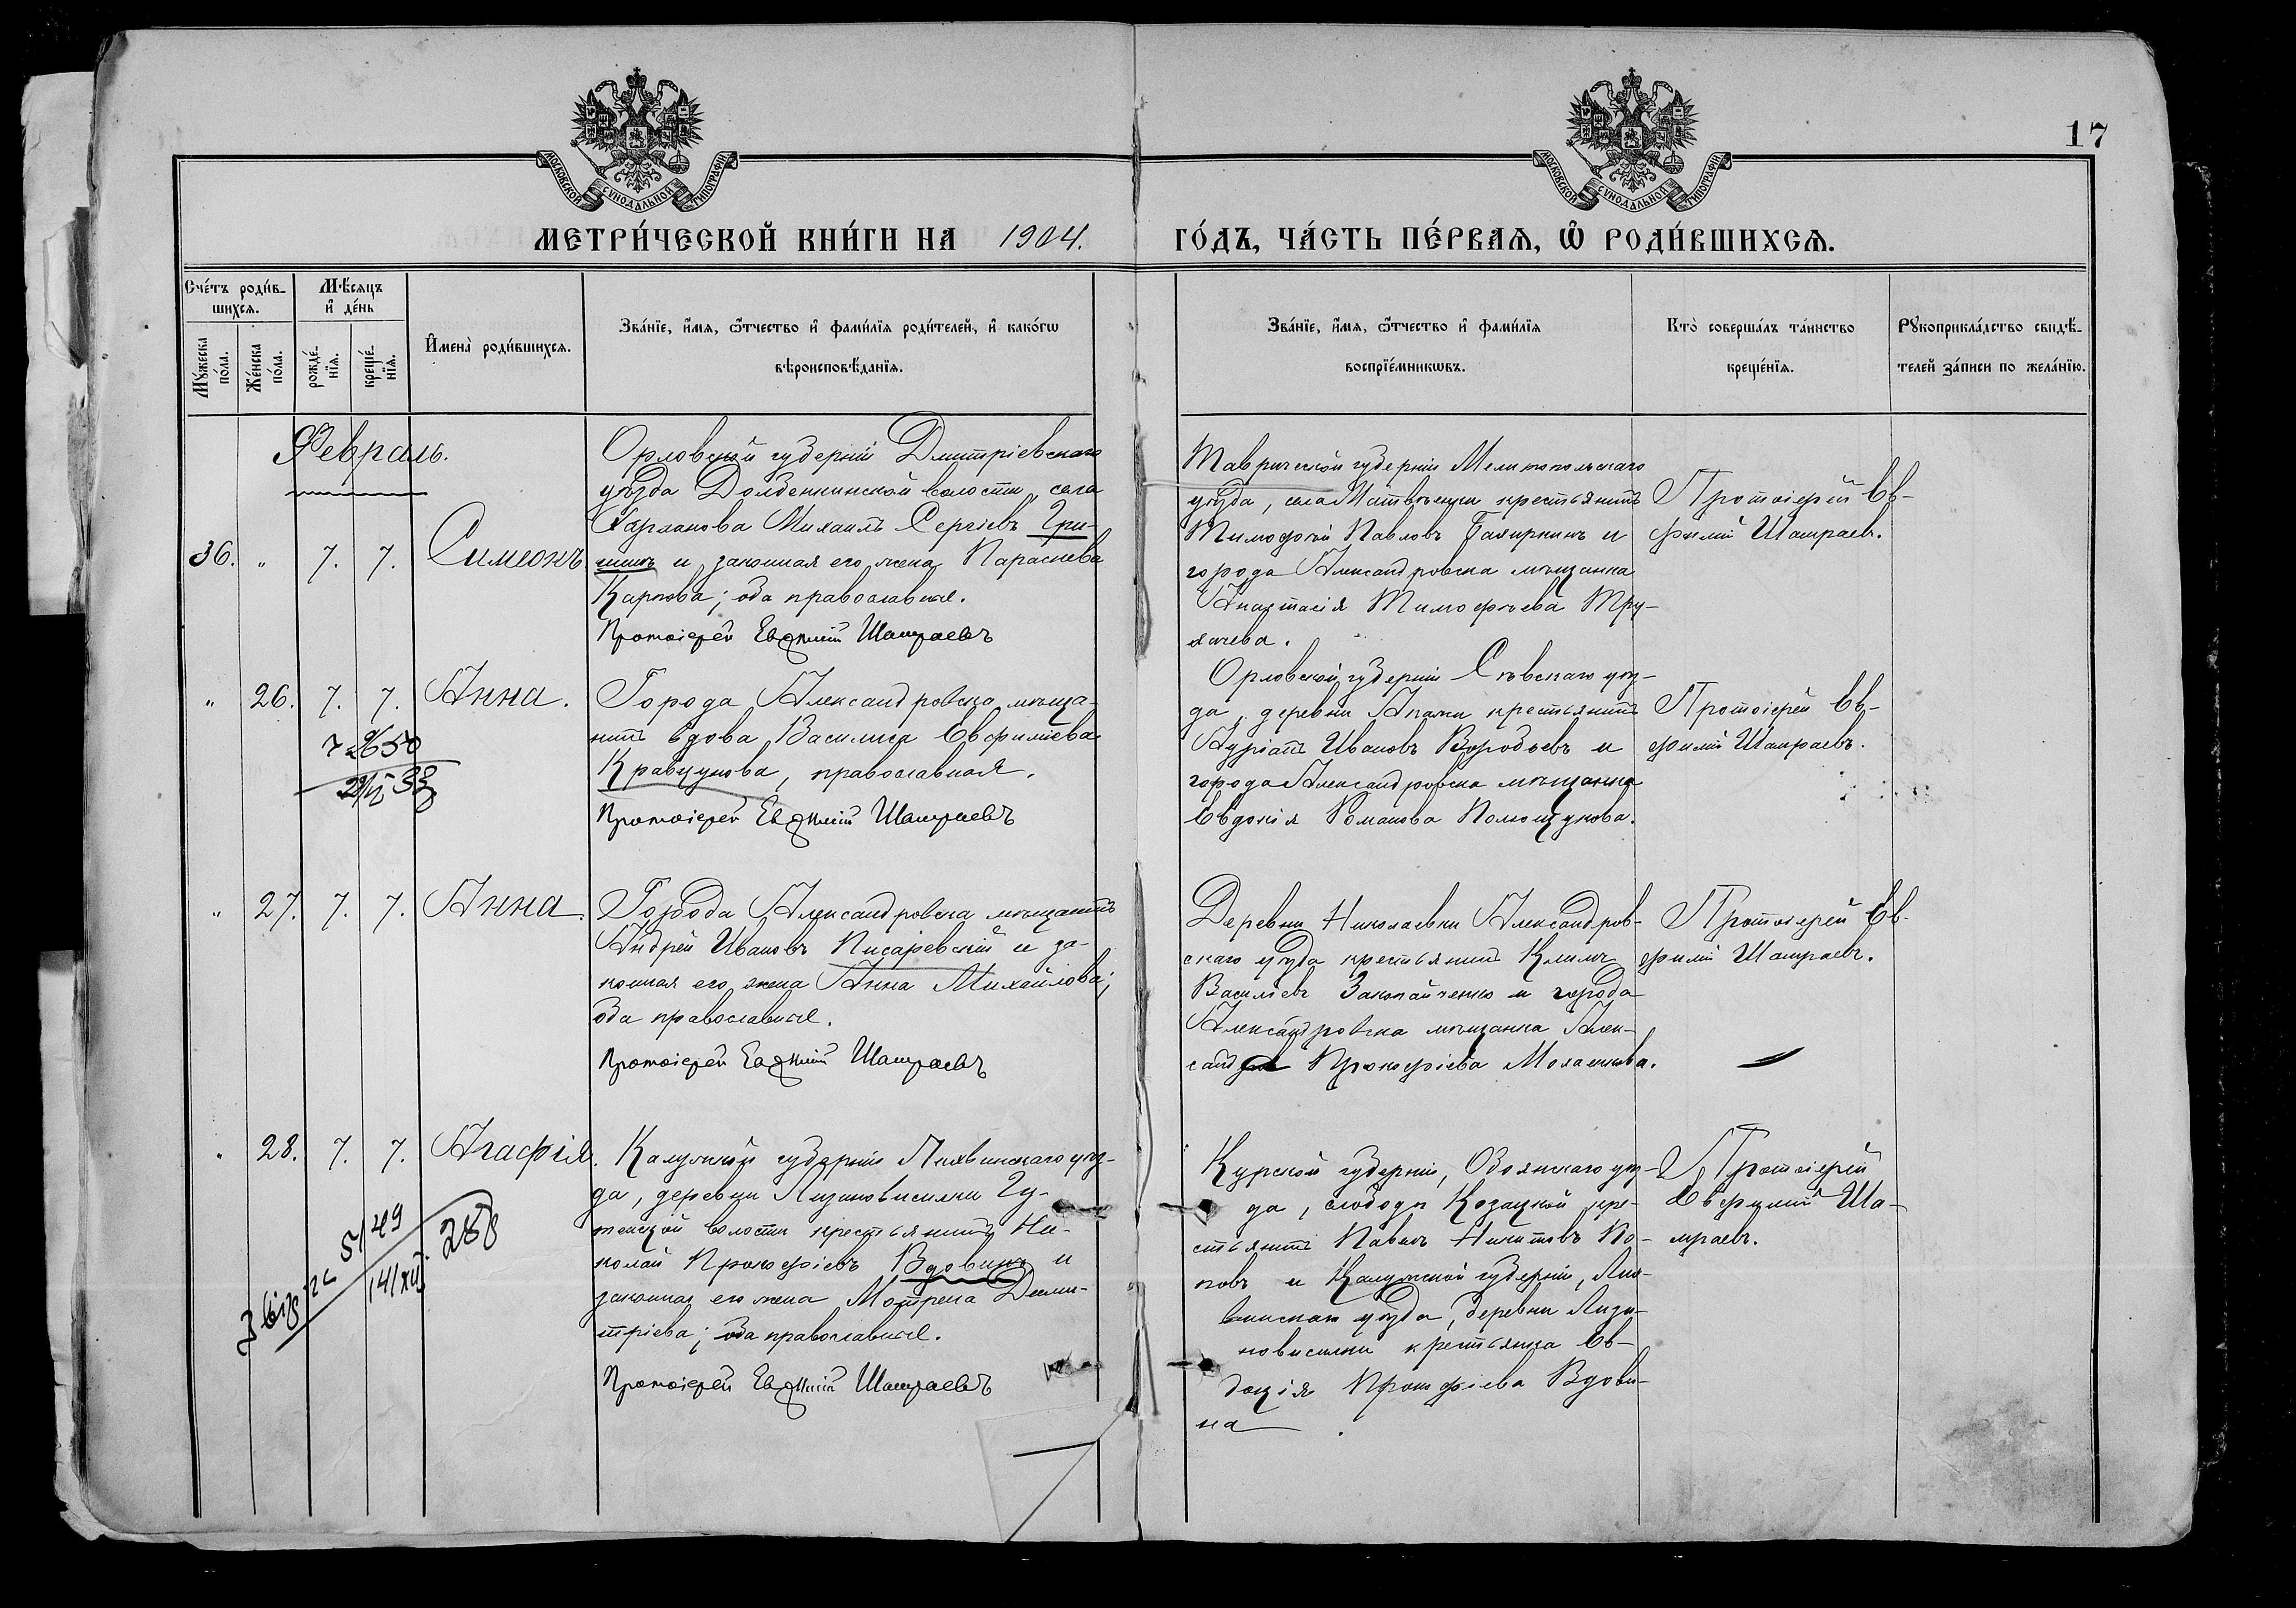 17
МОСКОВСКОЙ СУНОДАЛЬНОЙ ТИПОГРАФІИ
МОСКОВСКОЙ СУНОДАЛЬНОЙ ТИПОГРАФІИ
МЕТРИ́ЧЕСКОЙ КНИ́ГИ НА 1904. ГО́ДЪ, ЧА́СТЬ ПЕ́РВАѦ, Ѿ РОДИ́ВШИХСѦ.
Сче́тъ роди́в-
шихсѧ.
Мꙋ́жеска
по́ла.
Же́нска
по́ла.
Мѣ́сѧцъ
и҆ де́нь
рожде́-
нїѧ.
креще́-
нїѧ.
И҆мена̀ роди́вшихсѧ.
Зва́нїе, и҆́мѧ, ѻ҆́тчество и҆ фами́лїѧ роди́телей, и҆ како́гѡ
вѣроисповѣ́данїѧ.
Зва́нїе, и҆́мѧ, ѻ҆́тчество и҆ фами́лїѧ
воспрїе́мникѡвъ.
Кто̀ соверша́лъ та́инство
креще́нїѧ.
Рꙋкоприкла́дство свидѣ́-
телей за́писи по жела́нїю.
Февраль.
36. " 7. 7. Симеонъ
Орловской губерніи Дмитріевскаго
уѣзда Долбенкинской волости, села
Михаилъ Сергіевъ Гри-
шинъ и законная его жена Параскева
Карпова; оба православные.
Протоіерей Евѳимій Шамраевъ
Таврической губерніи Мелитопольскаго
уѣзда, села Матвѣевки крестьянинъ
Тимофей Павловъ и
города Александровска мѣщанка
Анастасія Тимофѣева Тру-
хачева.
Протоіерей Ев-
фимій Шамраевъ.
" 26. 7. 7. Анна.
Города Александровска мѣща-
нинъ вдова Василиса Евфиміева
Кравцунова, православная.
Протоіерей Евѳимій Шамраевъ
Орловской губерніи Сѣвскаго уѣз-
да, деревни крестьянинъ
Ивановъ Воробьевъ и
города Александровска мѣщанка
Евдокія Романова Полющукова.
Протоіерей Ев-
фимій Шамраевъ.
" 27. 7. 7. Анна.
Города Александровска мѣщанинъ
Андрей Ивановъ Писаревскій и за-
конная его жена Анна Михайлова;
оба православные.
Протоіерей Евѳимій Шамраевъ
Деревни Николаевки Александров-
скаго уѣзда крестьянинъ Климъ
Василіевъ Закопайченко и города
Александровска мѣщанка Алек-
сандра Прокофіева
Протоіерей Ев-
фимій Шамраевъ.
" 28. 7. 7. Агафія.
Калужской губерніи Лихвинскаго уѣз-
да, деревни Гу-
волости крестьянинъ Ни-
колай Прокофіевъ Вдовинъ и
законная его жена Мотрена Дими-
тріева; оба православные.
Протоіерей Евѳимій Шамраевъ
Курской губерніи, Обоянскаго уѣз-
да, слободы Козацкой кре-
стьянинъ Павелъ Никитовъ По-
повъ и Калужской губерніи, Лих-
винскаго уѣзда, деревни
крестьянка Ев-
докія Прокофіева Вдови-
на.
Протоіерей
Евфимій Ша-
мраевъ.